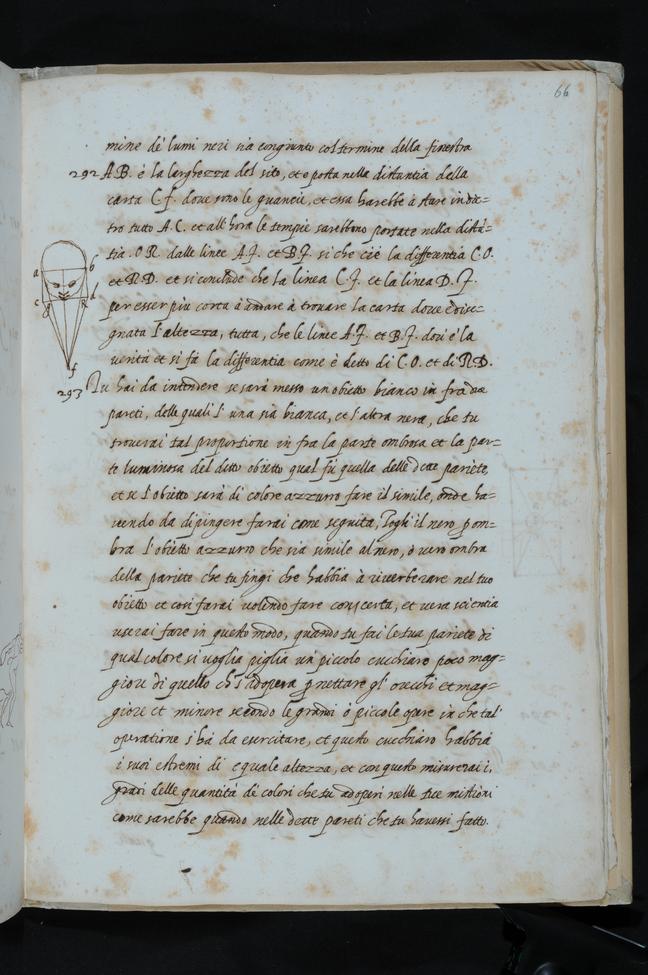 66
mine de' lumi neri sia congiunto col termine della finestra
292 A.B. è la larghezza del sito, et è posta nella distantia della
carta C.f. dove sono le guancie, et essa harebbe à stare indie=
tro tutto A.C. et all'hora le tempie sarebbono portate nella distā=
tia .O R. dalle linee A.f. et B.f. si che c'è la differentia C.O.
et R.D. et si conclude che la linea C.f. et la linea D.f.
per esser più corta à andare à trovare la carta dove è dise=
gnata l'altezza, tutta, che le linee A.f. et B.f. dov'è la
verità et si fà la differentia come è detto di C.O. et di R.D.
a b
c o R d
f
293 Tu hai da intendere se sarà messo un obietto bianco in fra due
pareti, delle quali l'una sia bianca, et l'altra nera, che tu
troverai tal proportione in fra la parte ombrosa et la par=
te luminosa del ditto obietto qual fù quella delle dette pariete,
et se l'obietto sarà di colore azzurro fare il simile, onde ha=
vendo da dipingere farai come seguita, Togli il nero p om=
bra l'obietto azzurro che sia simile al nero, ò vero ombra
della pariete che tu fingi che habbia à riverberare nel tuo
obietto et cosi farai volendo fare con certa, et vera scientia
userai fare in questo modo, quando tu fai le tua pariete di
qual colore si voglia piglia un piccolo cucchiaro poco mag=
giore di quello ch s'adopera p nettare gl' orecchi et mag=
giore et minore secondo le grandi ò piccole opere in che tal'
operatione s'hà da esercitare, et questo cucchiaro habbia
i suoi estremi di equale altezza, et con questo misurerai i,
gradi delle quantità de colori che tu adoperi nelle tue mistioni
come sarebbe quando nelle dette pareti che tu havessi fatto.